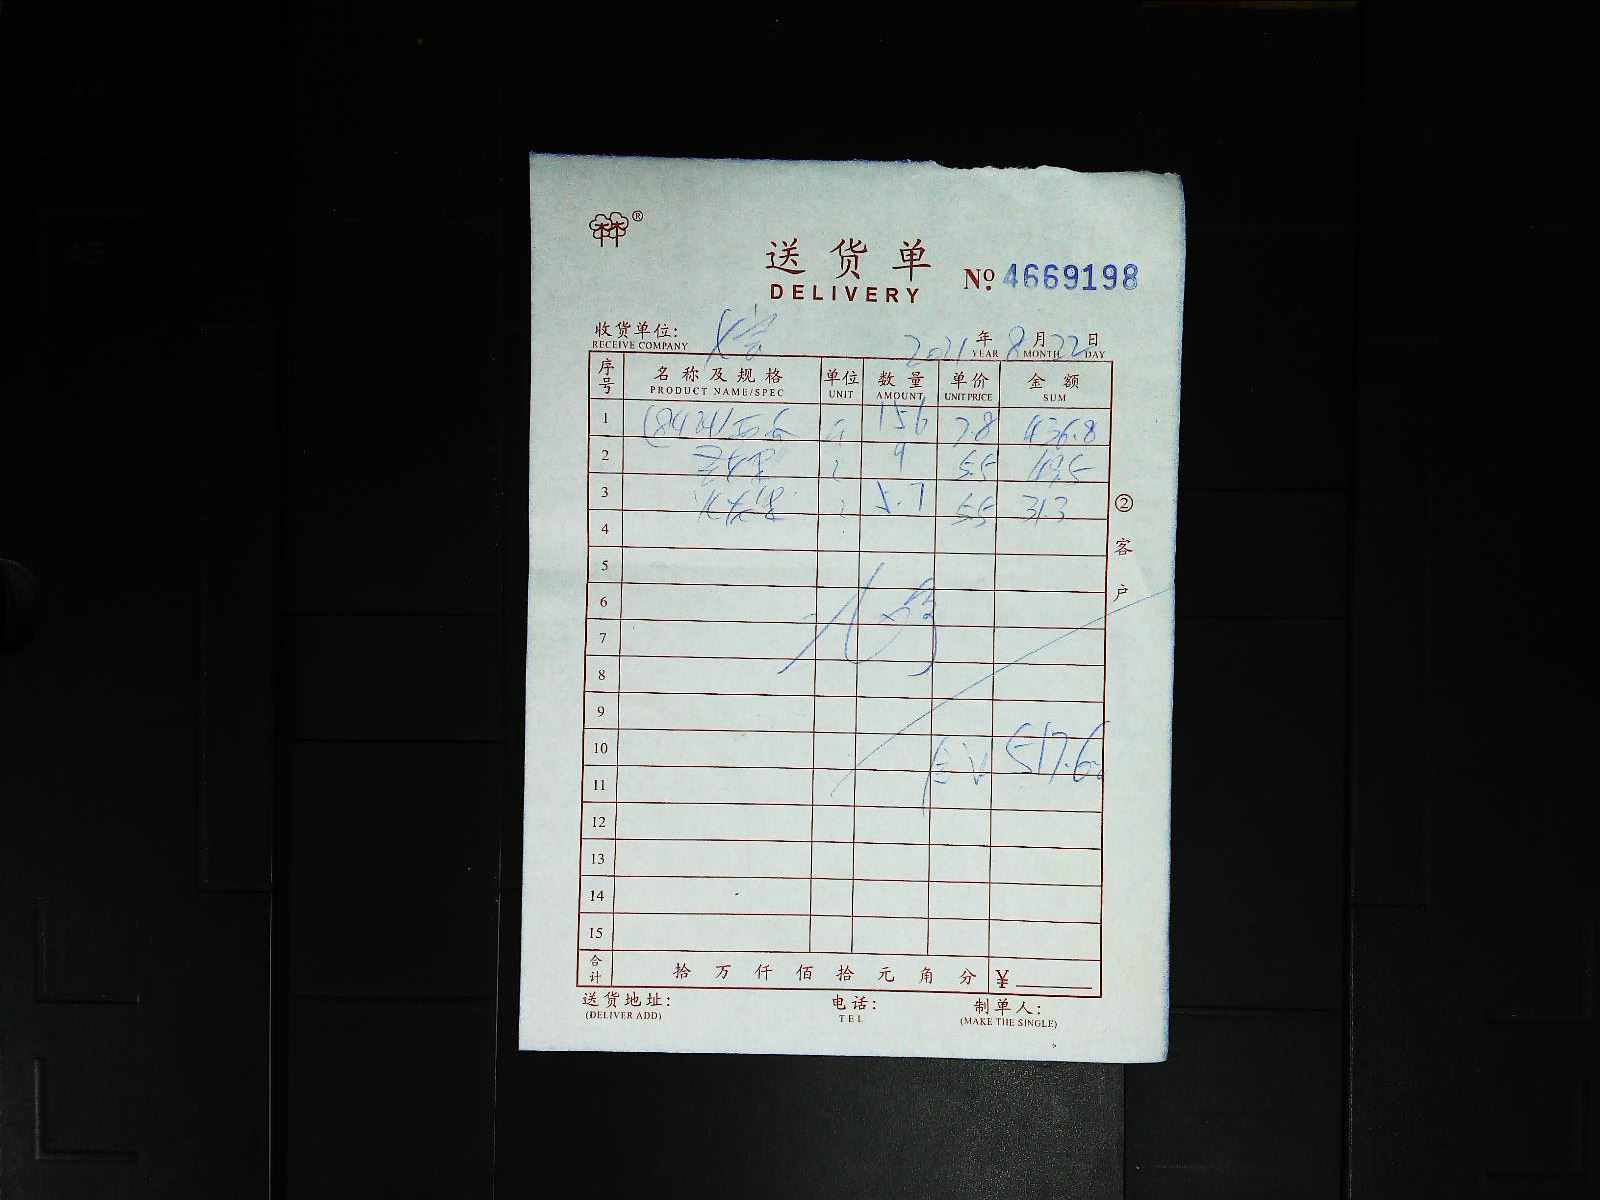 ®
送货单
DELIVERY
No. 4669198
收货单位:
RECEIVE COMPANY
2021年8月22日
YEAR MONTH DAY
序号 名称及规格 单位 数量 单价 金额
PRODUCT NAME/SPEC UNIT AMOUNT UNIT PRICE SUM
1 156 2.8 436.8
2 9 5.5 49.5
3 5.7 5.5 31.3
4
5
6
7
8
9
10 517.6
11
12
13
14
15
合计 拾 万 仟 佰 拾 元 角 分 ¥
②客户
送货地址: 电话: 制单人:
(DELIVER ADD) TEL (MAKE THE SINGLE)